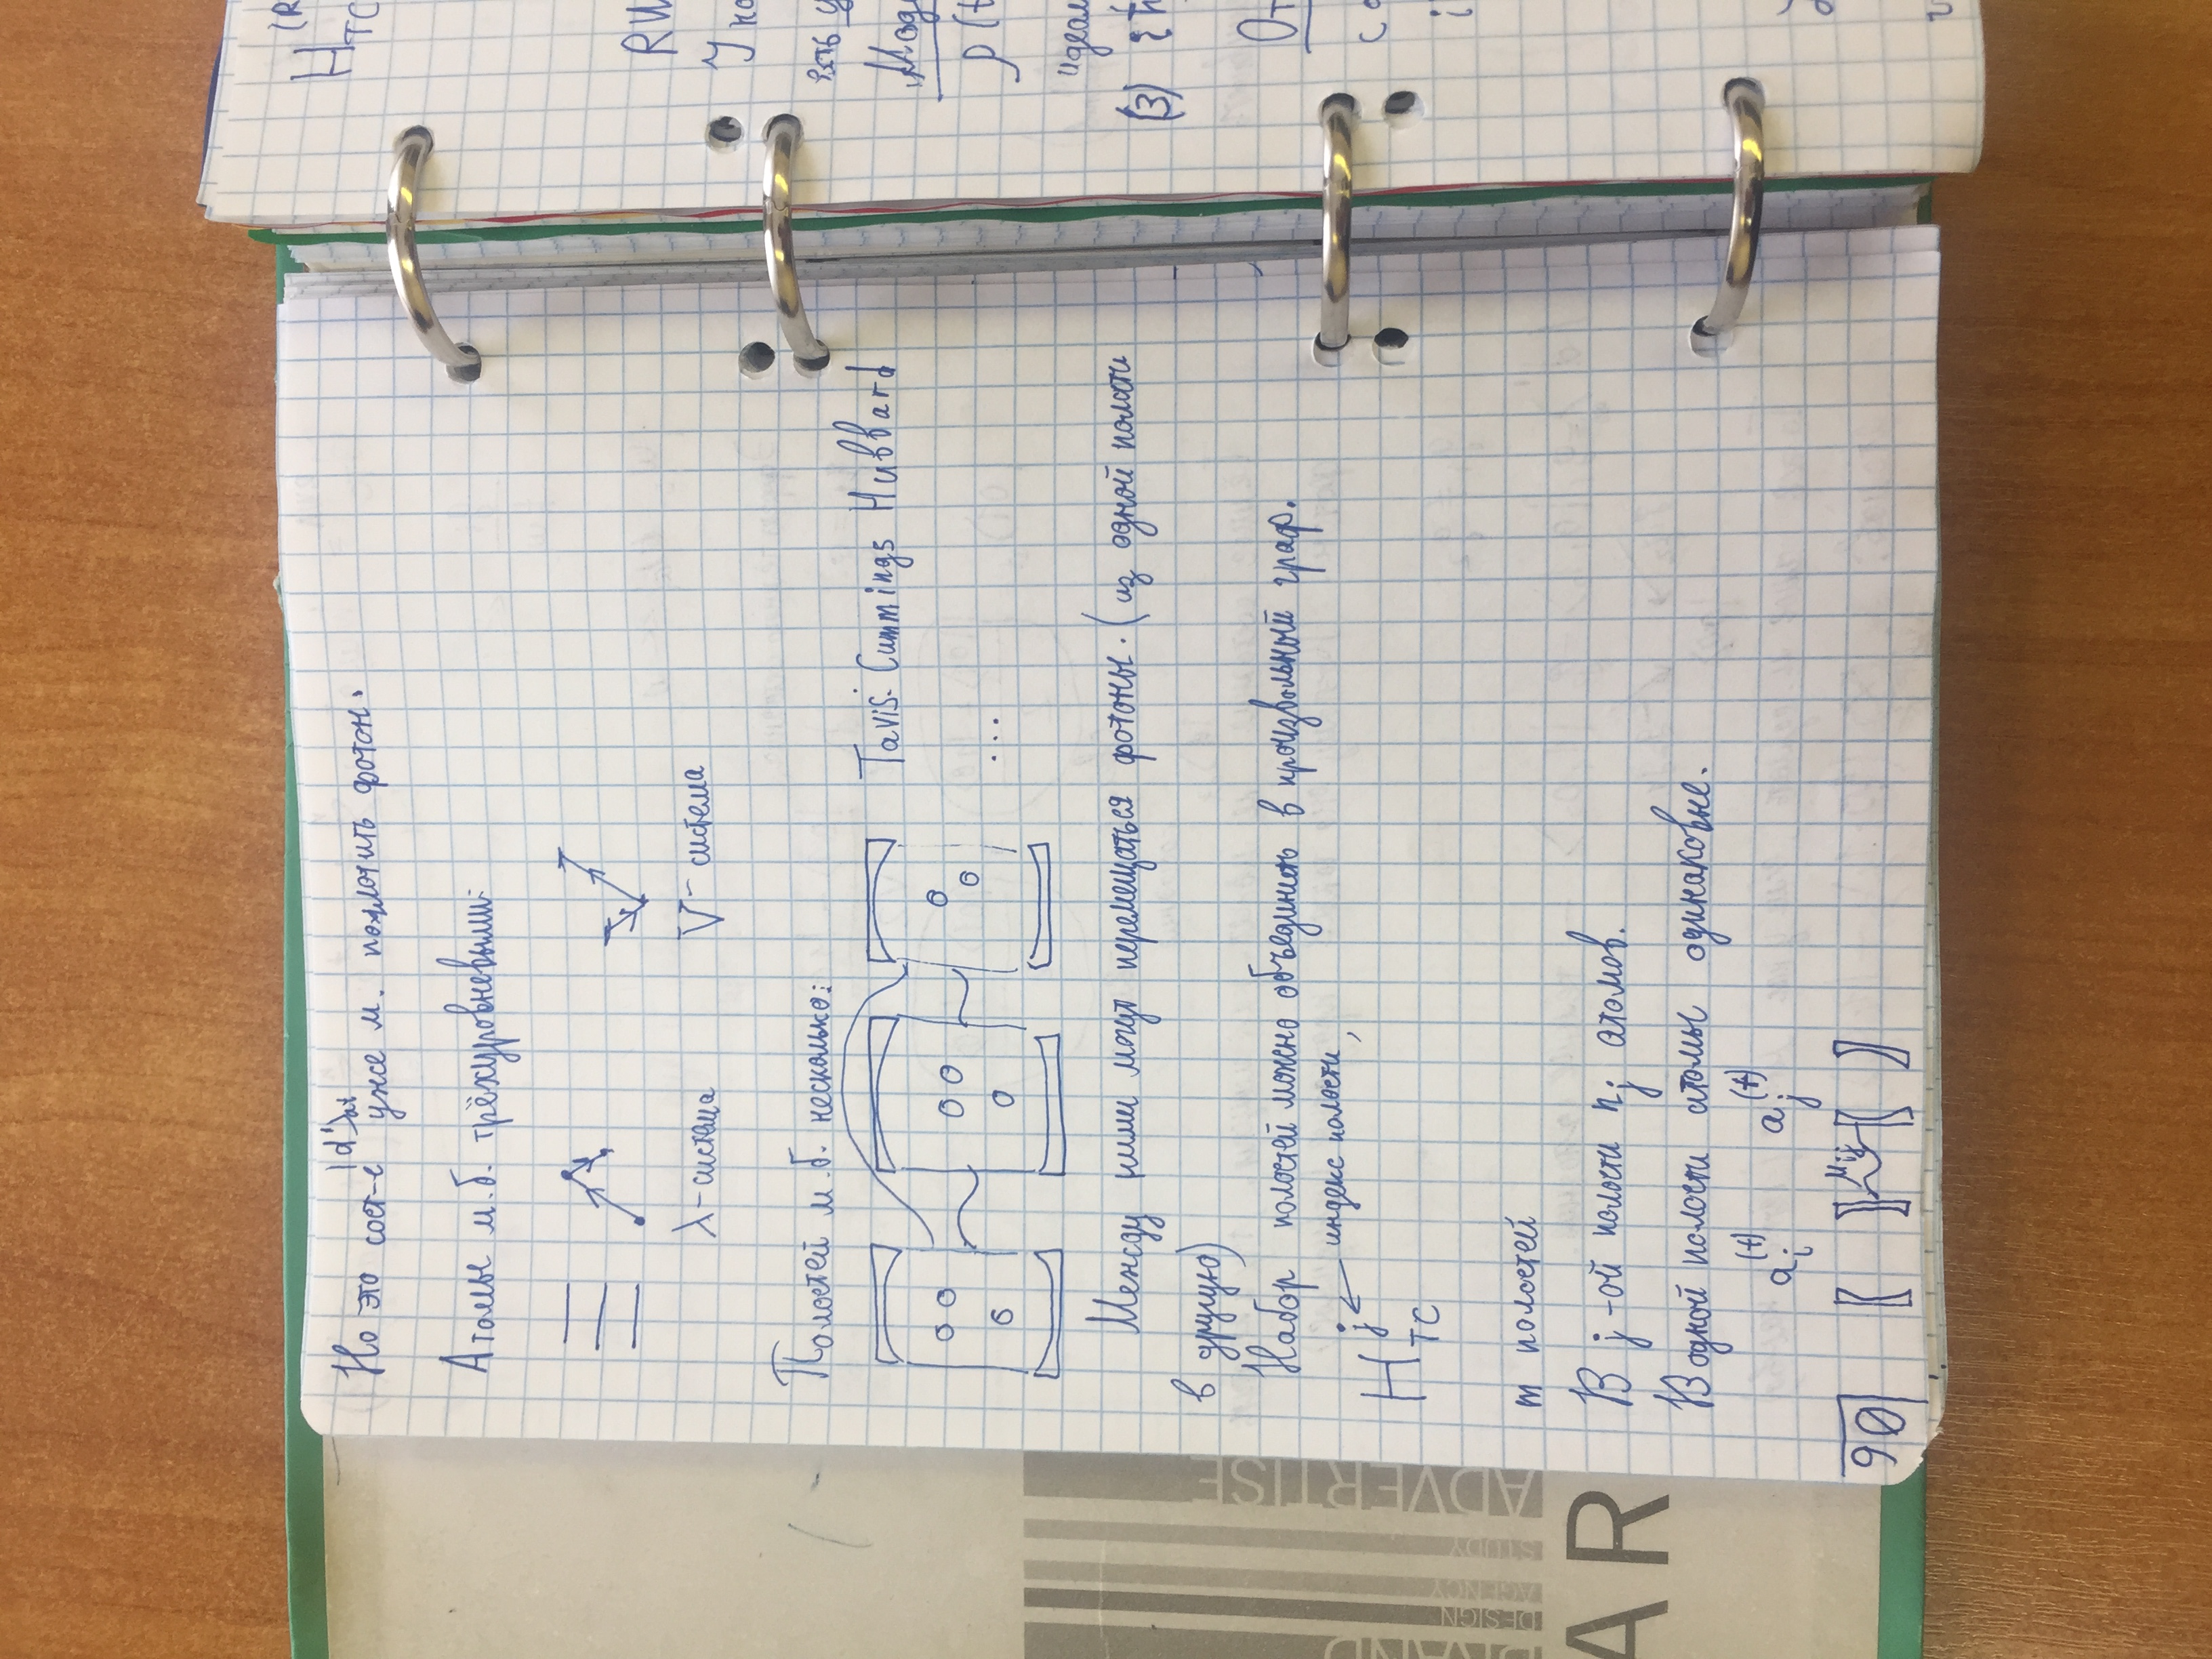 |d'⟩at
Но это сост-е уже м. поглотить фотон.
Атомы м.б. трёхуровневыми:
λ-система V-система
Полостей м.б. несколько:
Tavis-Cummings Hubbard
...
Между ними могут перемещаться фотоны. (из одной полости
в другую)
Набор полостей можно объединить в произвольный граф.
j ← индекс полости,
H TC
m полостей
В j-ой полости nj атомов.
В одной полости атомы одинаковые.
ai(+) aj(+)
μij
90
BRAND
DESIGN
AGENCY
STUDY
ADVERTISE
AR
(R
HTC
RW
У на
есть у
Мод
ρ(t
идеал
(3) iħ
От
с
i